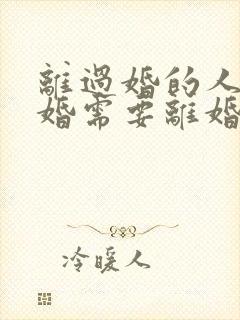 離過婚的人
婚需要離婚
冷暖人